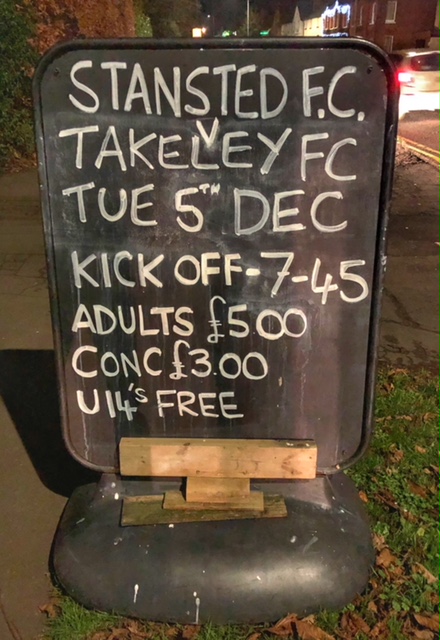 STANSTED F.C.
V
TAKELEY FC
TUE 5TH DEC
KICK OFF-7-45
ADULTS £5.00
CONC £3.00
U14'S FREE